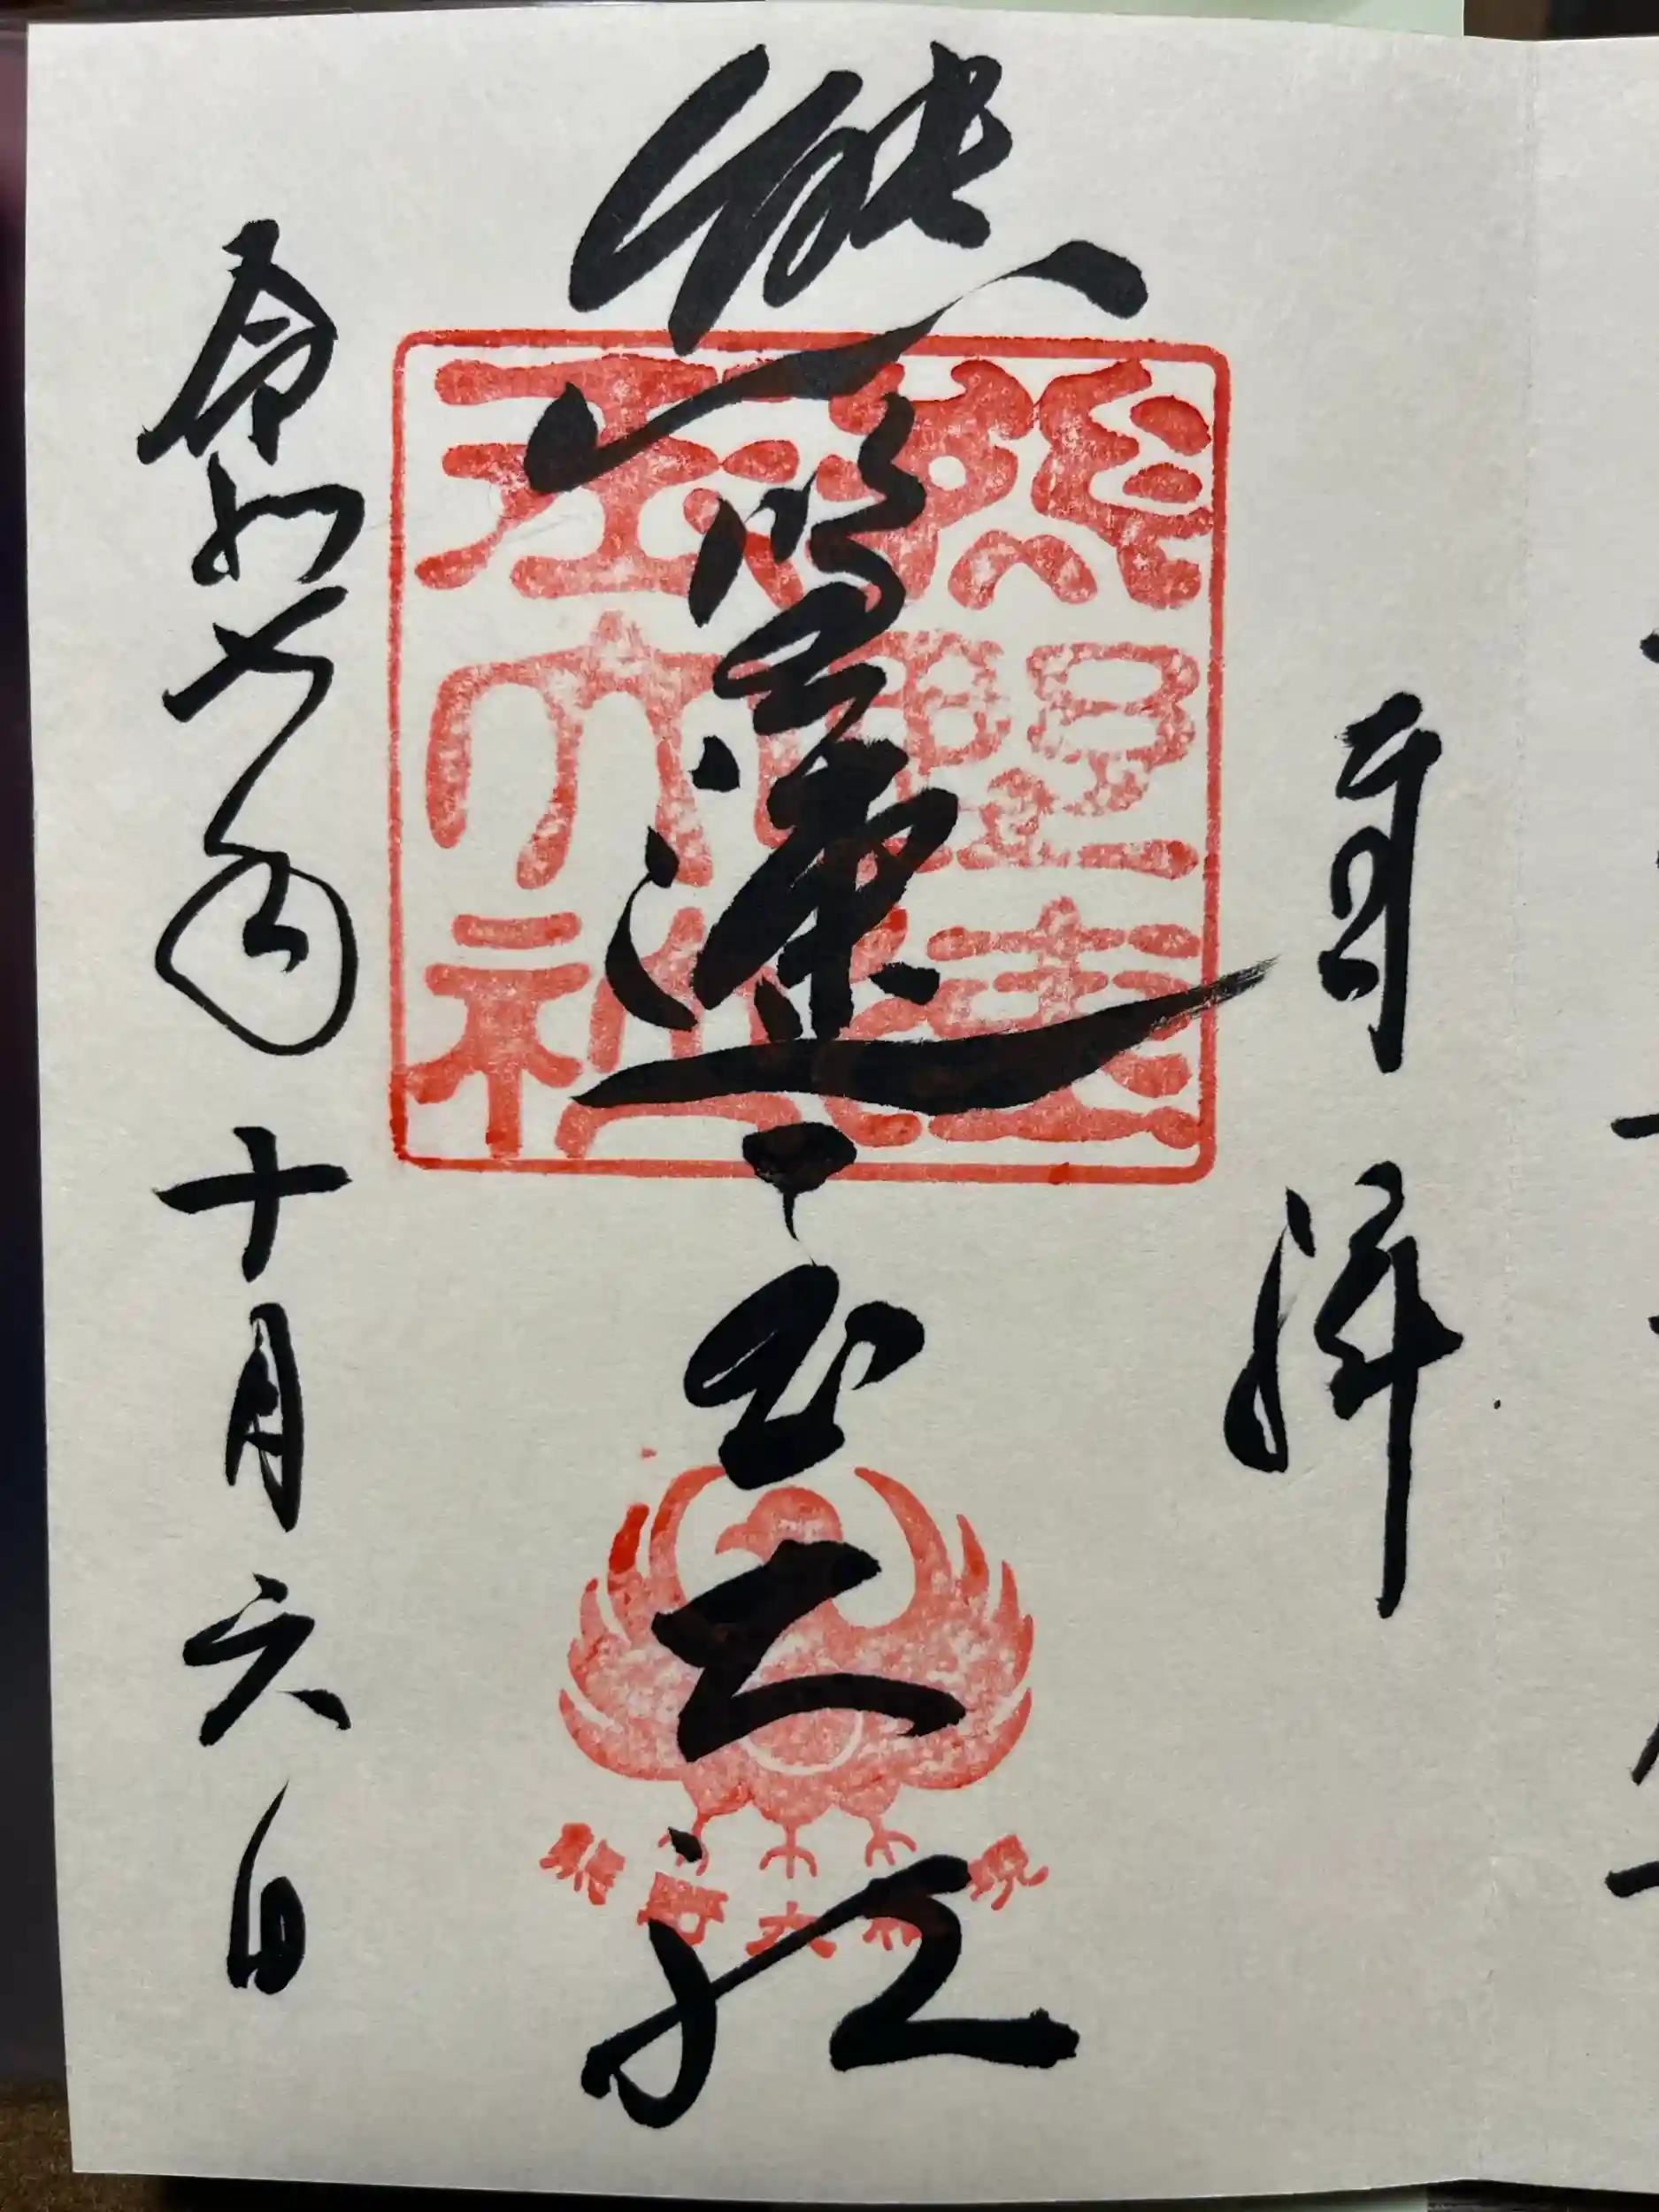 奉拝
熊野速玉大社
令和七年十月六日
熊野速
玉大社
熊野大権現